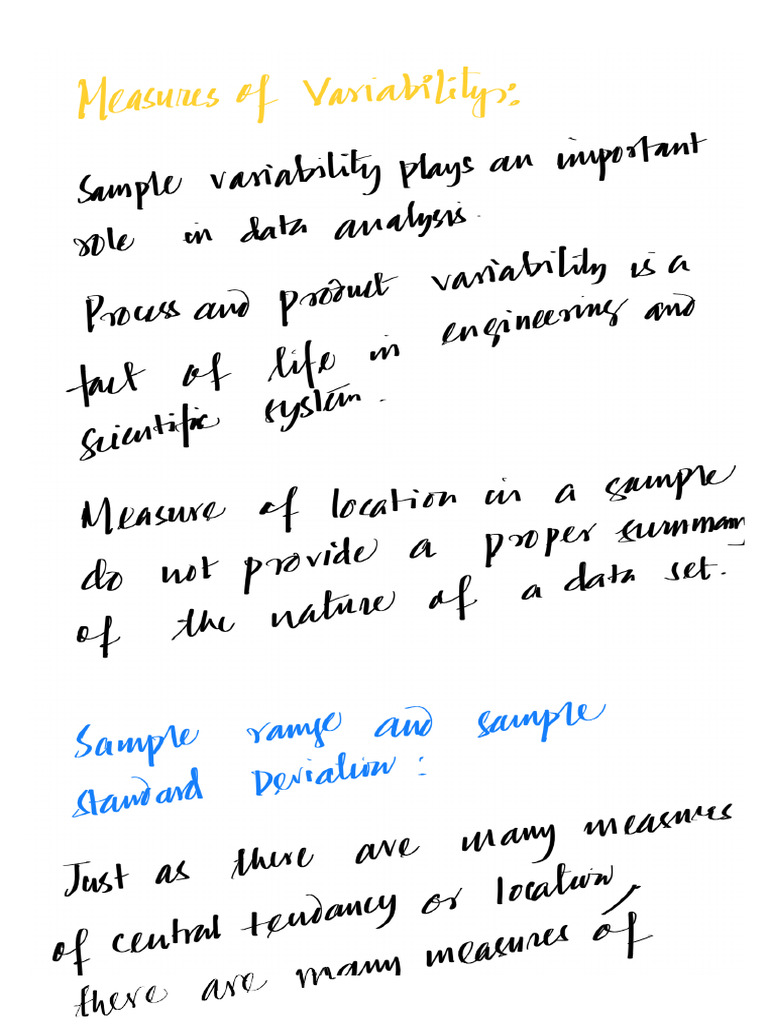 Measures of Variability:
Sample variability plays an important
role in data analysis.
Process and product variability is a
fact of life in engineering and
scientific system.
Measure of location in a sample
do not provide a proper summary
of the nature of a data set.
Sample range and sample
Standard Deviation:
Just as there are many measures
of central tendancy or location,
there are many measures of